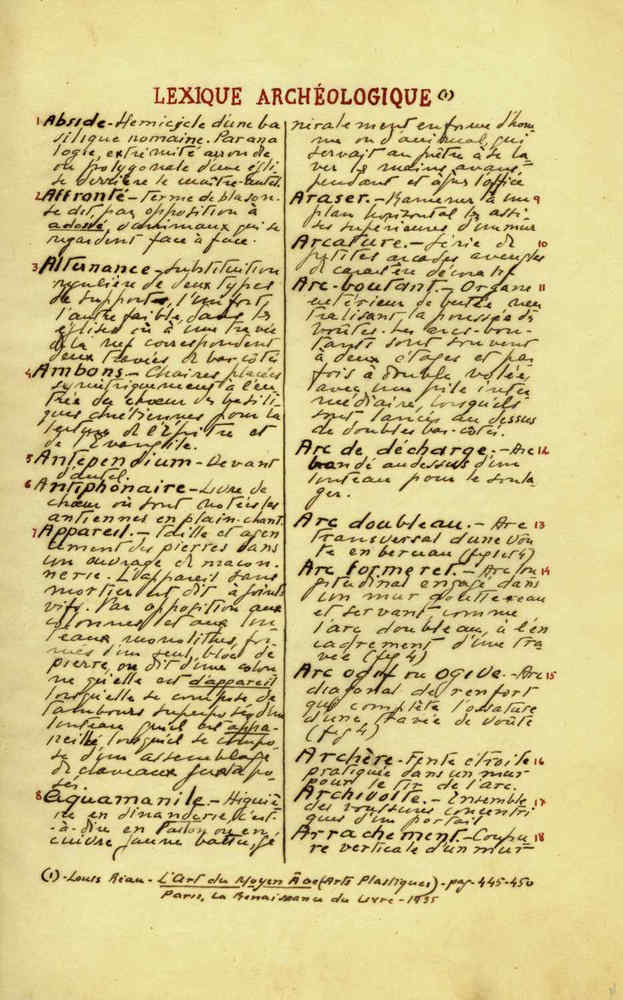 LEXIQUE ARCHÉOLOGIQUE (1)
1 Abside - Hémicycle d'une ba
silique romaine. Par ana
logie, extrémité arron die
ou polygonale d'une égli
se derrière le maître-autel.
2 Affronté - Terme de blason.
se dit, par opposition à
adossé, d'animaux qui se
regardent face à face.
3 Alternance - Substitution
régulière de deux types
de supports, l'un fort,
l'autre faible, dans les
églises où à une travée
de la nef correspondent
deux travées de bas-côtés
4 Ambons - Chaires placées
symétriquement à l'en
trée du chœur des basili
ques chrétiennes pour la
lecture de l'Épître et
de l'Évangile.
5 Antependium - Devant
d'autel.
6 Antiphonaire - Livre de
chœur où sont notées les
antiennes en plain-chant.
7 Appareil. - Taille et agen
cement des pierres dans
un ouvrage de maçon.
nerie. L'appareil sans
mortier est dit à joints
vifs. Par opposition aux
colonnes et aux lin
teaux monolithes, for
més d'un seul bloc de
pierre, on dit d'une colon
ne qu'elle est d'appareil
lorsqu'elle se compose de
tambours superposés, d'un
linteau qu'il est appa-
reillé, lorsqu'il se compo
se d'un assemblage
de claveaux juxtapo
sés.
8 Aquamanile. - Aiguiè
re en dinanderie, c'est-
-à-dire en laiton ou en
cuivre jaune battu, gé
néralement en forme d'hom
me ou d'animal, qui
servait au prêtre à se la
ver les mains avant,
pendant et après l'office
Araser. - Ramener à un 9
plan horizontal les assi
ses supérieures d'un mur
Arcature. - Série de 10
petites arcades aveugles
de caractère décoratif
Arc-boutant. - Organe 11
extérieur de butée neu
tralisant la poussée des
voûtes. Les arcs-bou-
tants sont souvent
à deux étages et par
fois à double volée,
avec une pile inter
médiaire, lorsqu'ils
sont lancés au dessus
de doubles bas-côtés.
Arc de décharge. - Arc 12
bandé au dessus d'un
linteau pour le soula
ger.
Arc doubleau. - Arc 13
transversal d'une voû
te en berceau (fig 1 et 4)
Arc formeret. - Arc lon 14
gitudinal engagé dans
un mur gouttereau
et servant comme
l'arc doubleau, à l'en
cadrement d'une tra
vée (fig 4)
Arc ogif ou ogive. - Arc 15
diagonal de renfort
qui complète l'ossature
d'une travée de voûte
(fig 4)
Archère - Fente étroite 16
pratiquée dans un mur
pour le tir de l'arc.
Archivolte. - Ensemble 17
des voussures concentri
ques d'un portail
Arrachement. - Coupu 18
re verticale d'un mur
(1) - Louis Réau - L'Art du Moyen Âge (Arts Plastiques) - pag. 445-450
Paris, La Renaissance du Livre - 1935